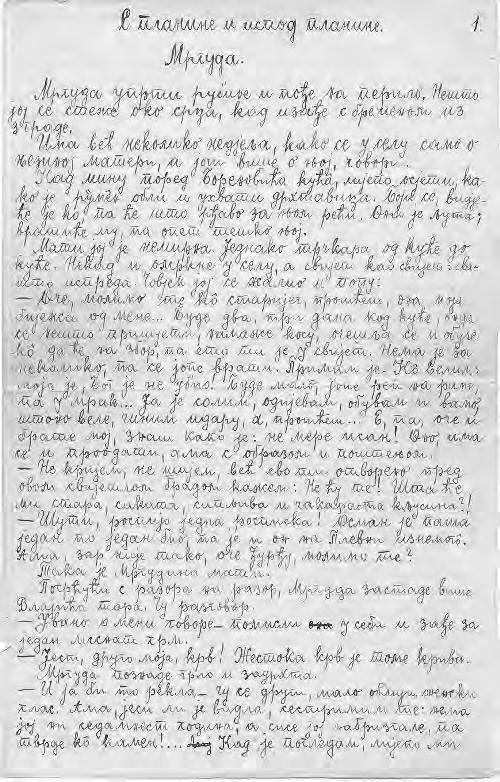 С планине и испод планине. 1.
Мргуда.
Мргуда упрти рубине и пође на перило. Нешто
јој се стеже око срца, кад изиђе с бременом из
зграде.
Има већ неколико недјеља, како се у селу само о
њезиној матери, а још више о њој, говори.
Кад мину поред Боројевића кућа, лијепо осјети, ка-
ко је румен обли и ухвати дрхтавица. Боји се, виде-
ће је ко, па ће што ружно за њом рећи. Она је љута;
вратиће му, па опет тешко њој.
Мати јој је немирна. Једнако трчкара од куће до
куће. Некад и омркне у селу, а свијет као свијет: сва-
шта испреда. Човјек јој се жалио и попу:
— Оче, молимо те кô старијег, проштен, она
бјежа од мене... Буде два, три дана код куће,
се нешто пришујти, наљаже косу, очешља се и обује
кô да ће на збор, па ето ти је у свијет. Нема је за
неколико, па се јопе врати. Примам је. Кћ велим:
моја је, Бог је не убио! Буде мало, јопе реп на раме,
па у мрак... Ја је солим, одијевам, обувам и вамо,
штоно веле, чиним мдару, а, проштен... Е, па, оче и
брате мој, знаш како је: не мере исан! Оно, има
се и продати, ама с образом и поштењом.
— Не кријем, не шијем, већ ево ти отворено пред
овом свијетлом брадом кажем: Нећу те! Шта ће
ми стара, слинта, сипљива и чакараста кљусина?!
— Шути, роспијо једна роспинска! Осман је паша
један по један био, па је и он на Плевни изнемогô.
Ама, зар није тако, оче Ђурђу, молимо те?
Така је Мргудина мати.
Потрчући с разора на разор, Мргуда застаде више
Влајића тора. Чу разговор.
— Убано о мени говоре — помисли у себи и зађе за
један лиснат грм.
— Јест, друго моја, крв! Жестока крв је томе крива.
Мргуда познаде грло и задрхта.
— И ја би то рекла — чу се други, мало обљи, женски
глас. Ама, јеси ли је видла, сестримим те: нема
јој ни седамнест година, а сисе јој набризгале, па
тврде кô камен!... Кад је погледам, лијепо ми